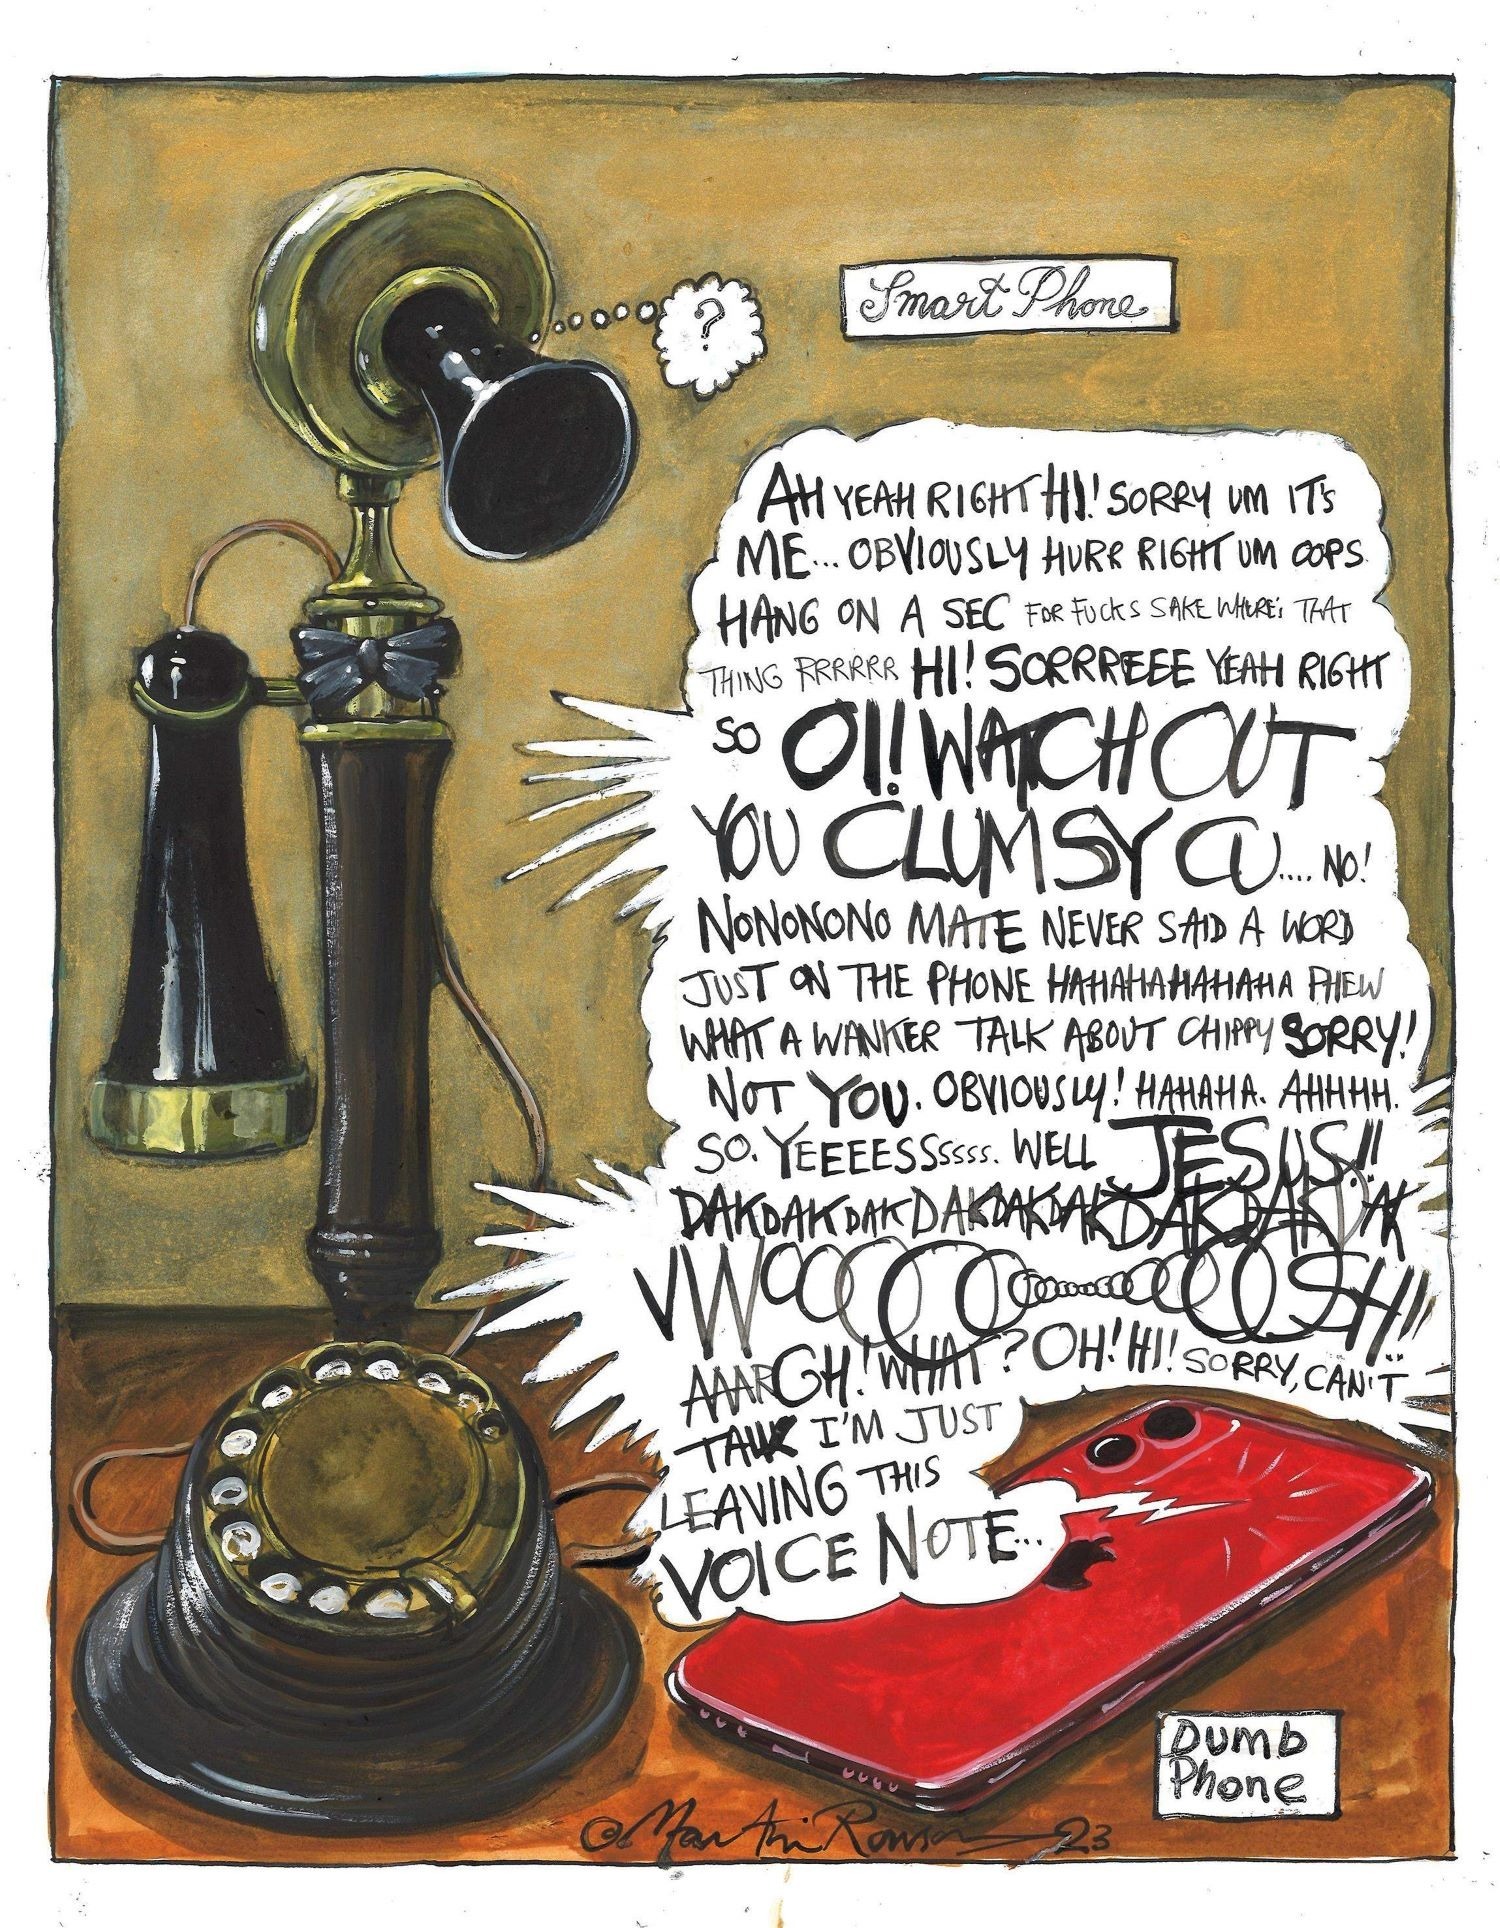 ?
Smart Phone
AH YEAH RIGHT HI! SORRY UM IT'S
ME... OBVIOUSLY HURR RIGHT UM OOPS
HANG ON A SEC FOR FUCKS SAKE WHERE'S THAT
THING RRRRRR HI! SORRRREEEE YEAH RIGHT
SO OI! WATCH OUT
YOU CLUMSY CU.... NO!
NONONONO MATE NEVER SAID A WORD
JUST ON THE PHONE HAHAHAHAHAHA PHEW
WHAT A WANKER TALK ABOUT CHIPPY SORRY!
NOT YOU. OBVIOUSLY! HAHAHA. AHHHH.
SO. YEEEESSSssss. WELL JESUS!!
DAKDAKDAKDAKDAKDAKDAKDAKDAKDAK
VWOOOOOOOooooooooooOOOOOSH!!
AAARGH! WHAT? OH! HI! SORRY, CAN'T
TALK I'M JUST
LEAVING THIS
VOICE NOTE...
Dumb
Phone
© Martin Rowson 23